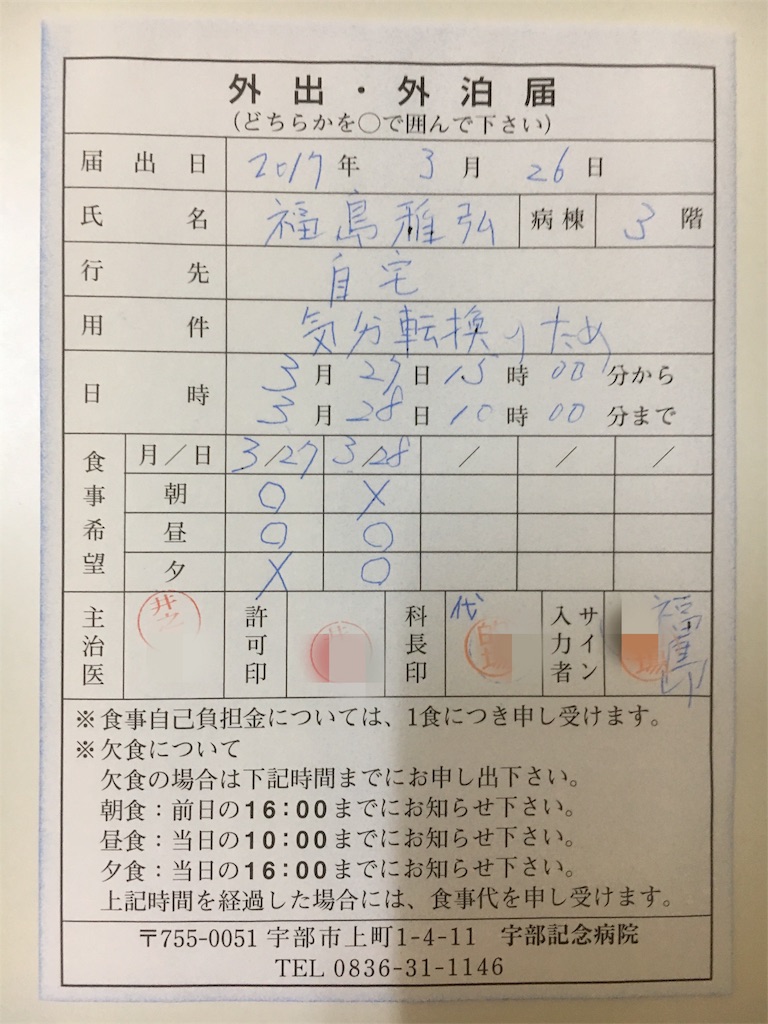 外出・外泊届
(どちらかを○で囲んで下さい)
届出日 2017年 3月 26日
氏名 福島雅弘 病棟 3階
行先 自宅
用件 気分転換のため
日時 3月27日15時00分から
3月28日10時00分まで
食事希望 月/日 3/27 3/28 / / /
朝 ○ ×
昼 ○ ○
夕 × ○
主治医 許可印 科長印 代 入力者サイン 福島印
※食事自己負担金については、1食につき申し受けます。
※欠食について
欠食の場合は下記時間までにお申し出下さい。
朝食:前日の16:00までにお知らせ下さい。
昼食:当日の10:00までにお知らせ下さい。
夕食:当日の16:00までにお知らせ下さい。
上記時間を経過した場合には、食事代を申し受けます。
〒755-0051 宇部市上町1-4-11 宇部記念病院
TEL 0836-31-1146